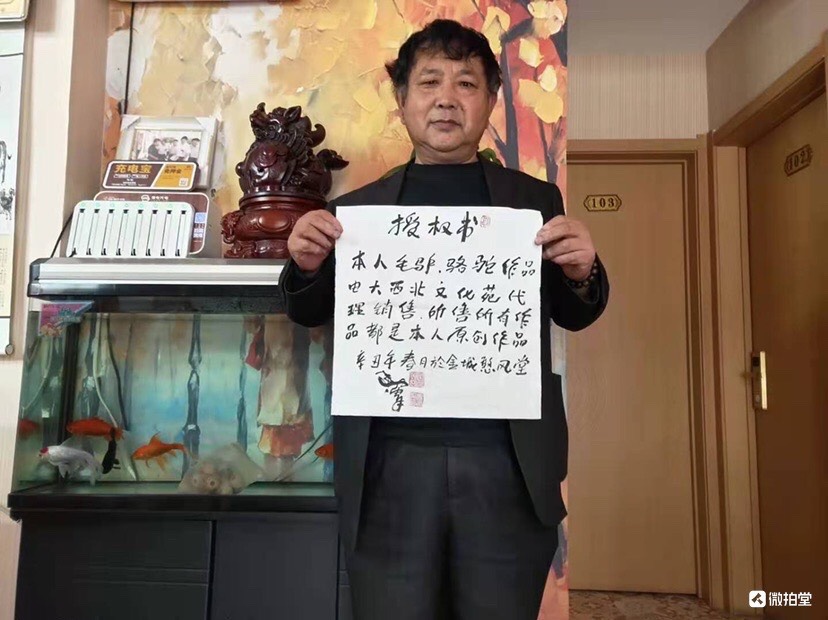 授权书
本人毛驴、骆驼作品
由大西北文化苑代
理销售，所售所有作
品都是本人原创作品
辛丑年春月於金城憨风堂
充电宝
103
102
微拍堂